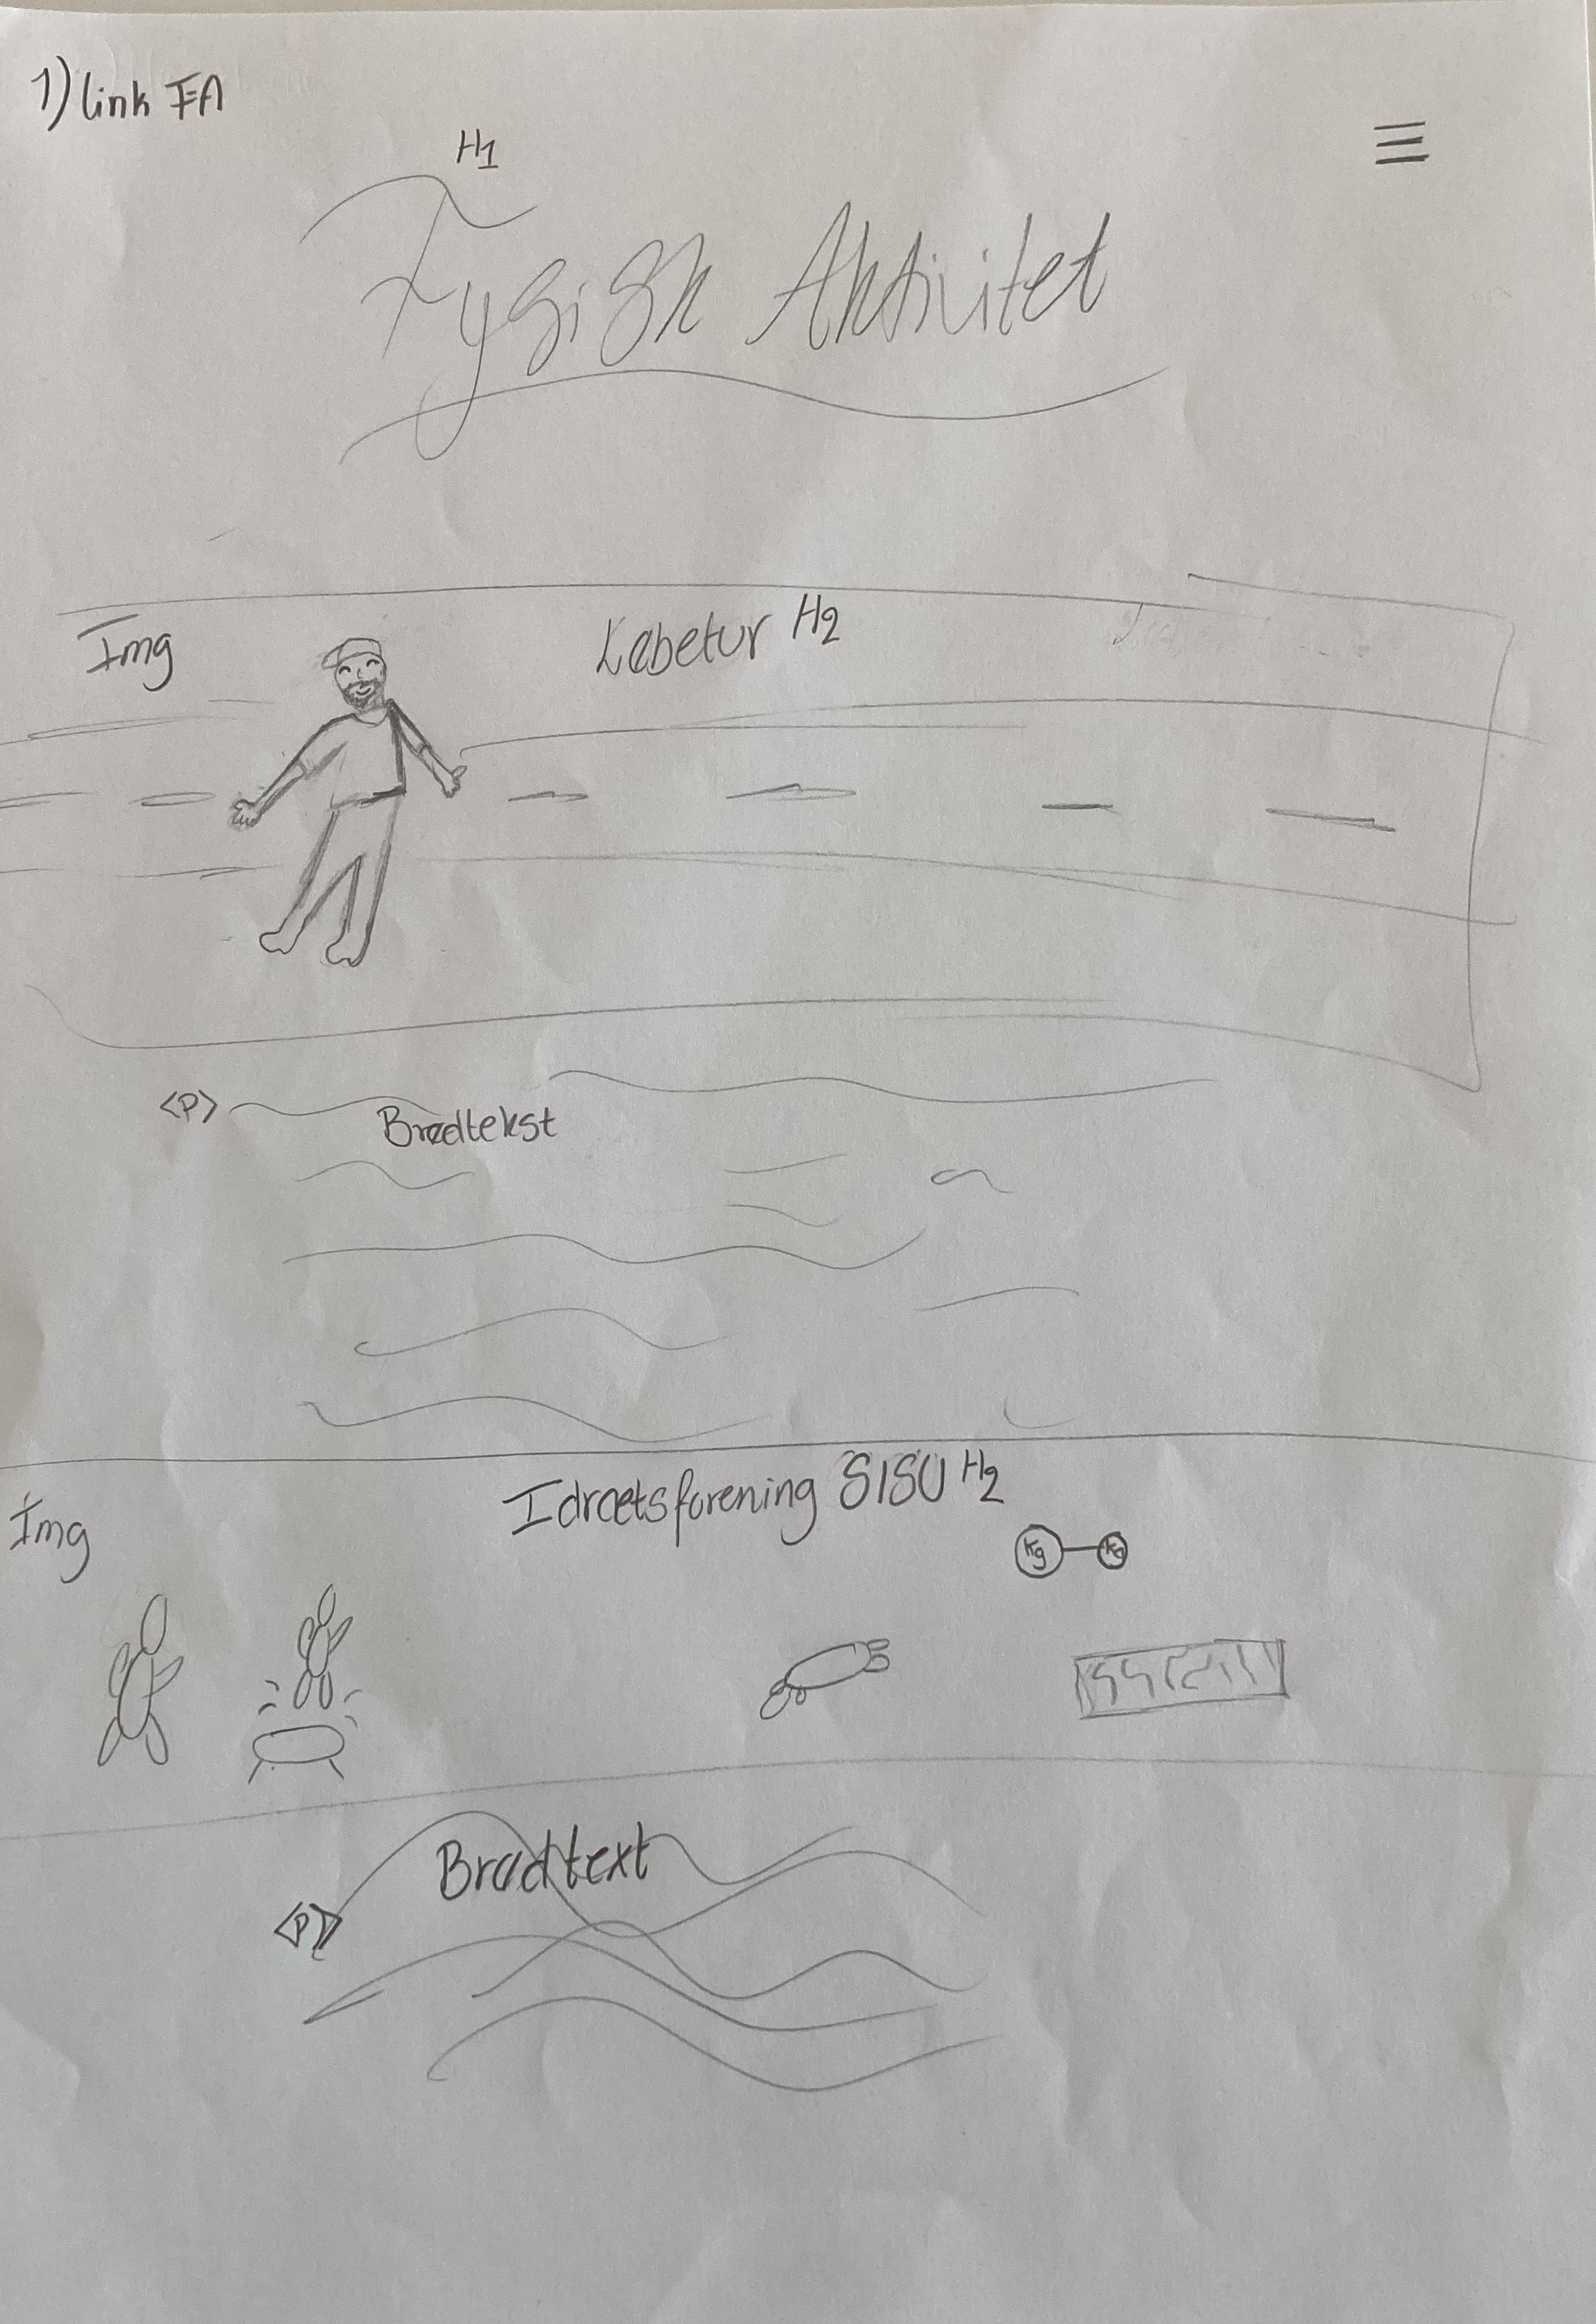 1) link FA
H1
Fysisk Aktivitet
Img
Løbetur H2
<P>
Brødtekst
Idrætsforening SISU H2
Img
kg kg
Brødtext
<P>